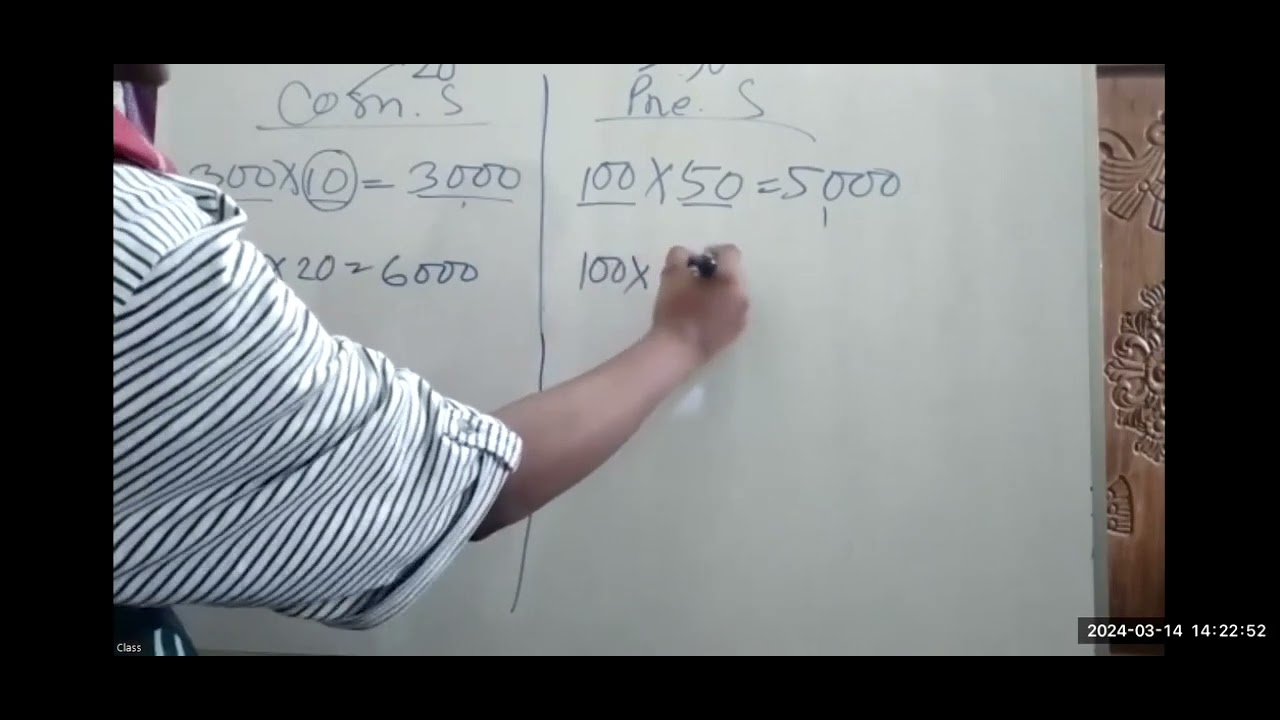 20
Com. S
300×10=3000
×20=6000
Pre. S
100×50=5000
100×
Class
2024-03-14 14:22:52